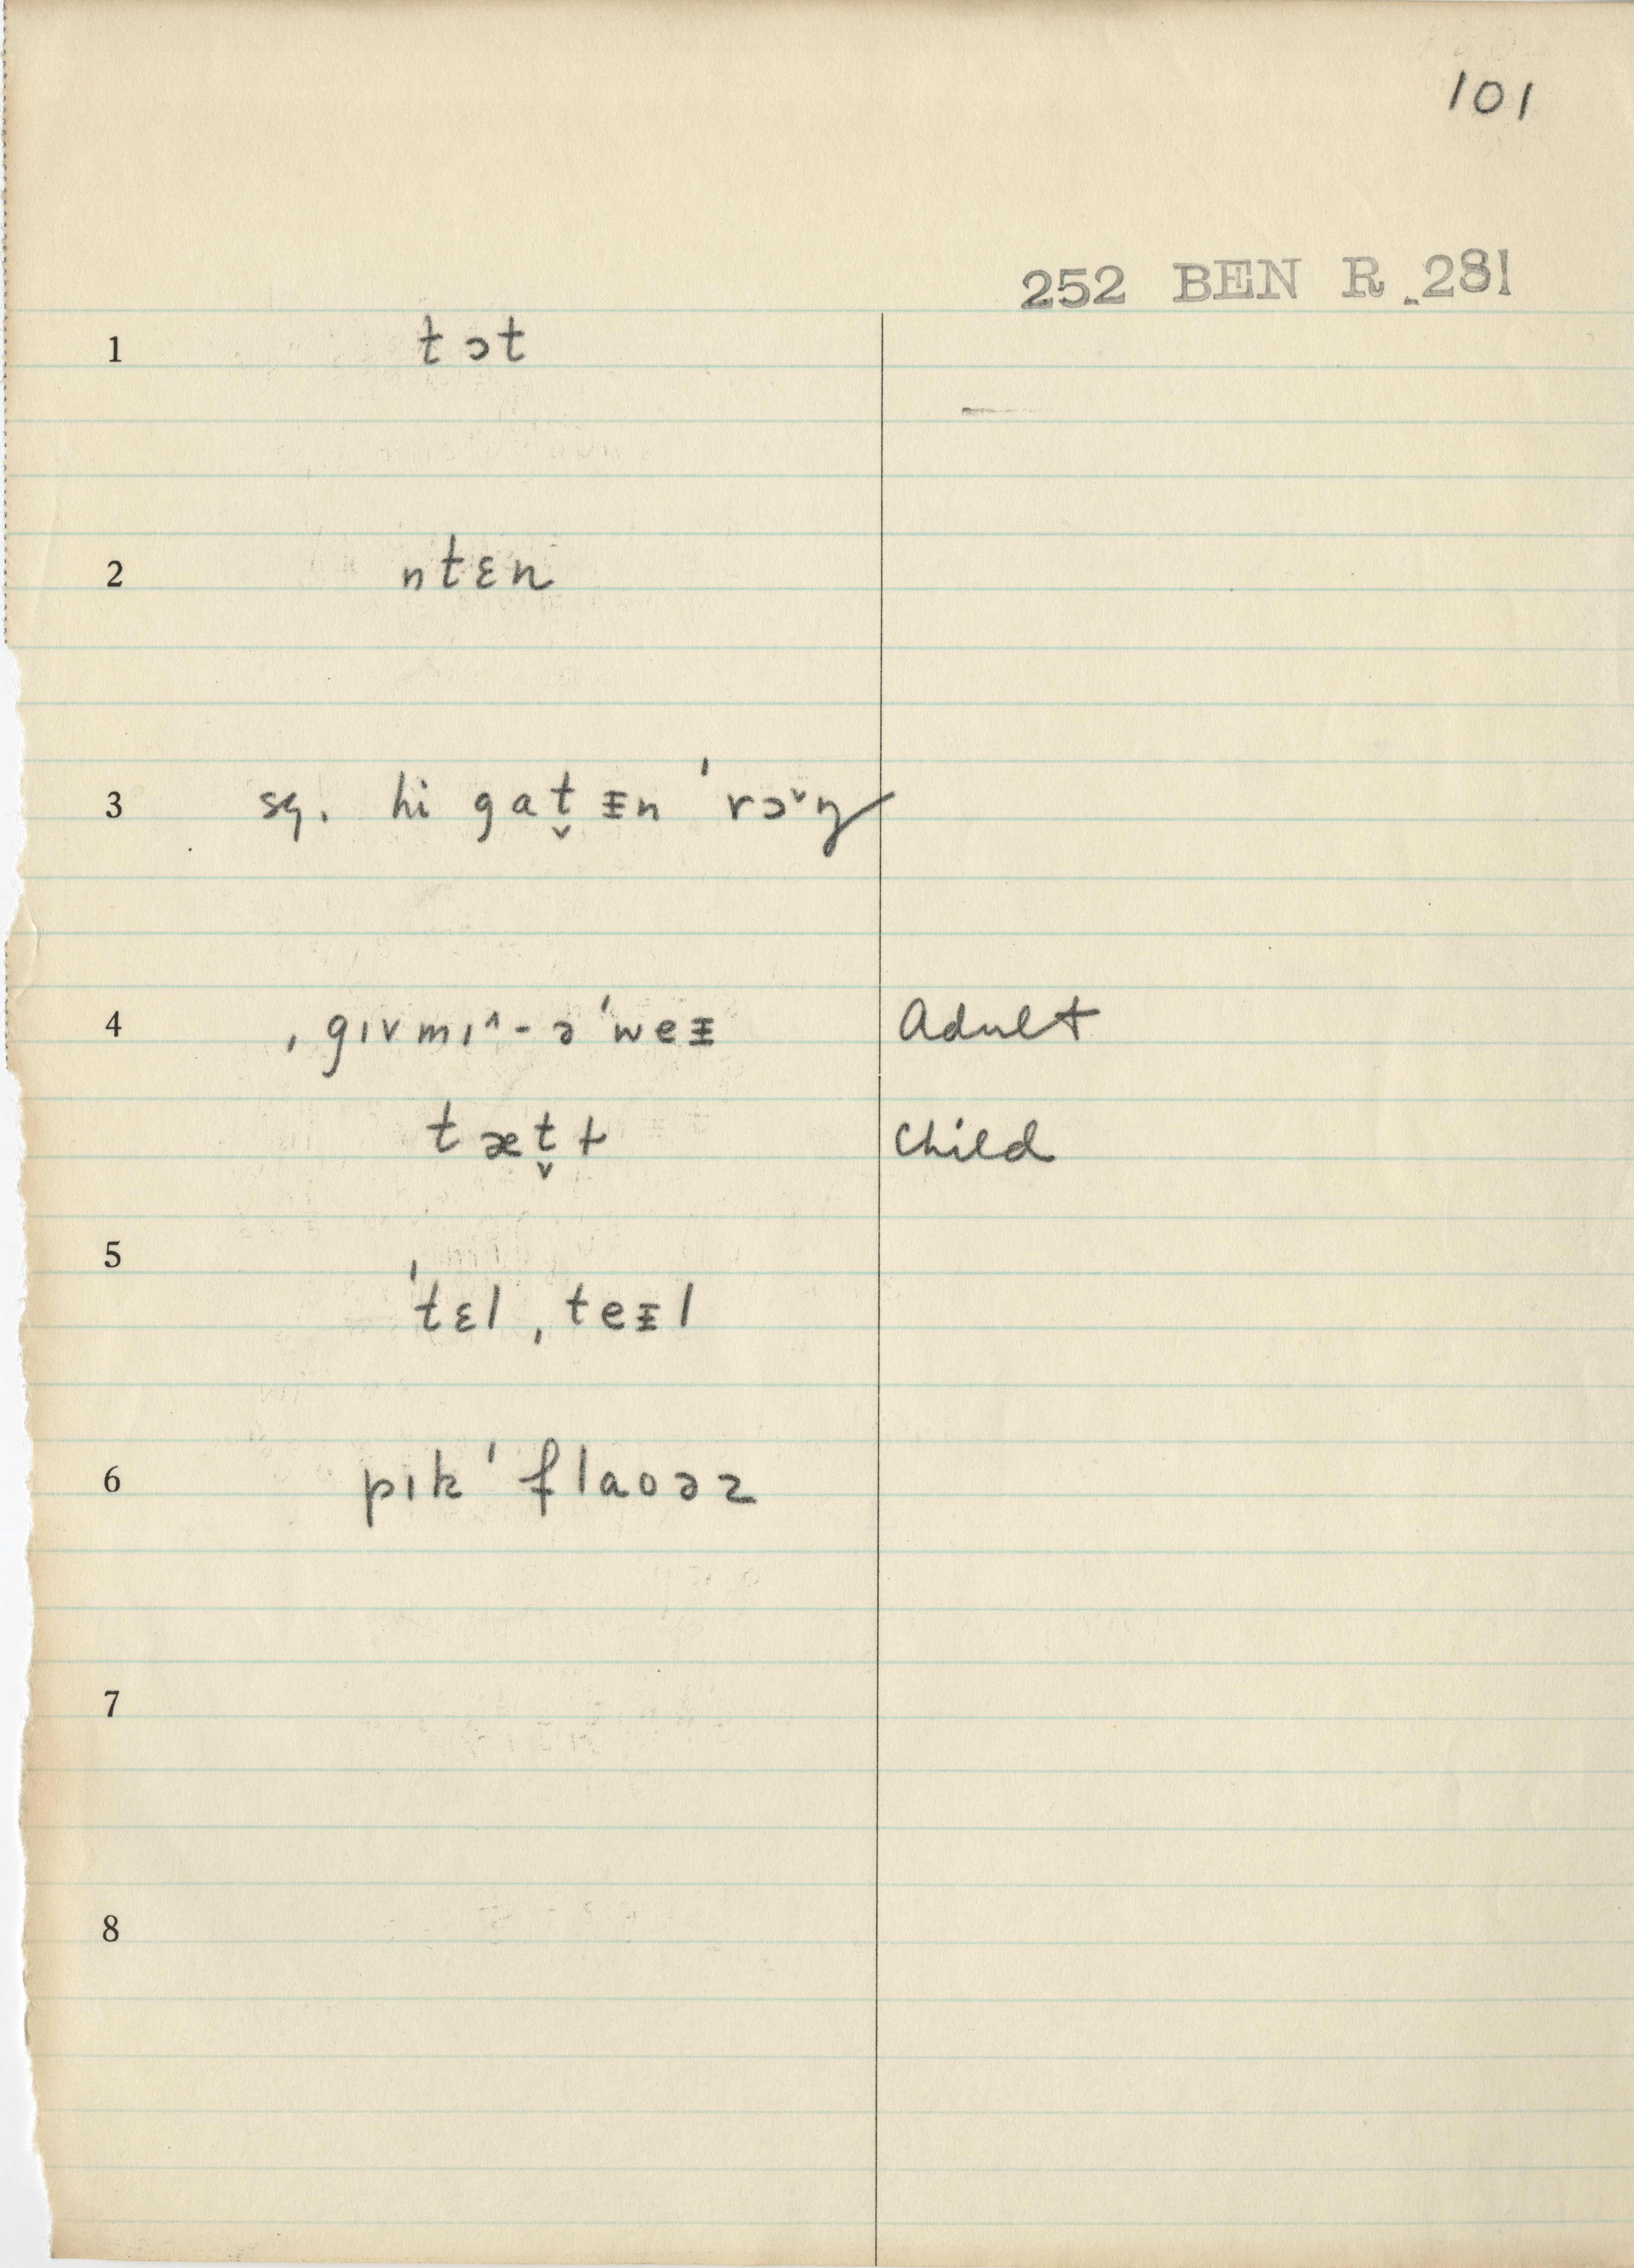 101
252 BEN R. 281
1 tɔt
2 ntɛn
3 sq. hi gat̬ᵻn ˈrɔ˅ŋ
4 ˌgɪvmɪ^-əˈweᵻ Adult
tæt̬ɫ Child
5 ˈtɛl, teᵻl
6 pɪkˈflaoəz
7
8